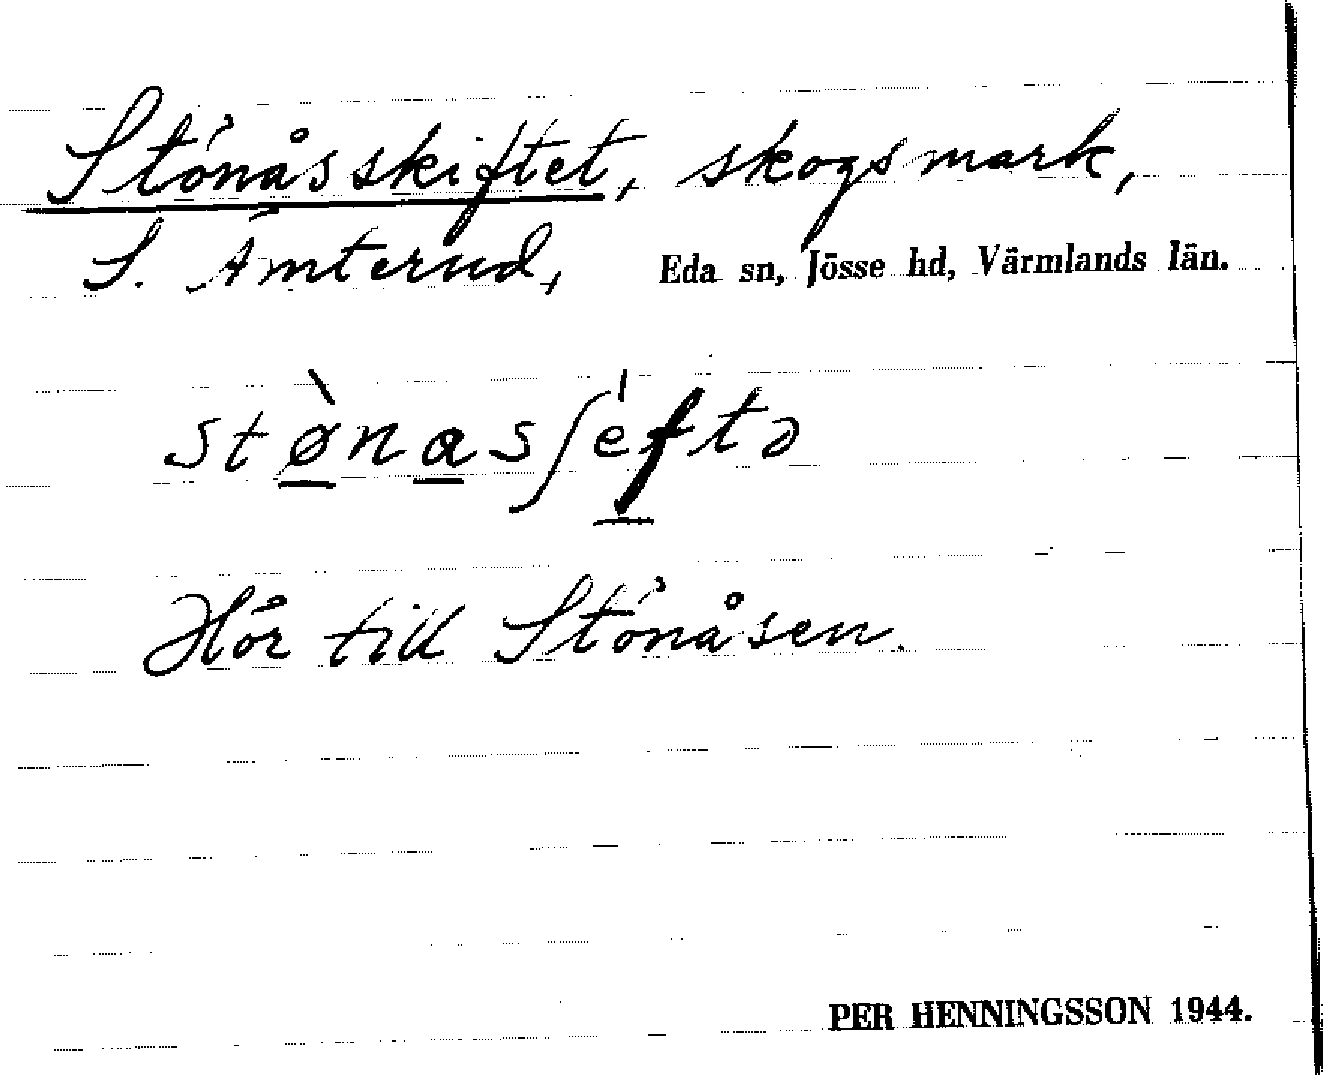 Stönåsskiftet, skogsmark,
S. Ämterud, Eda sn, Jösse hd, Värmlands län.
stø̀nasʃéftə
Hör till Stönåsen.
PER HENNINGSSON 1944.